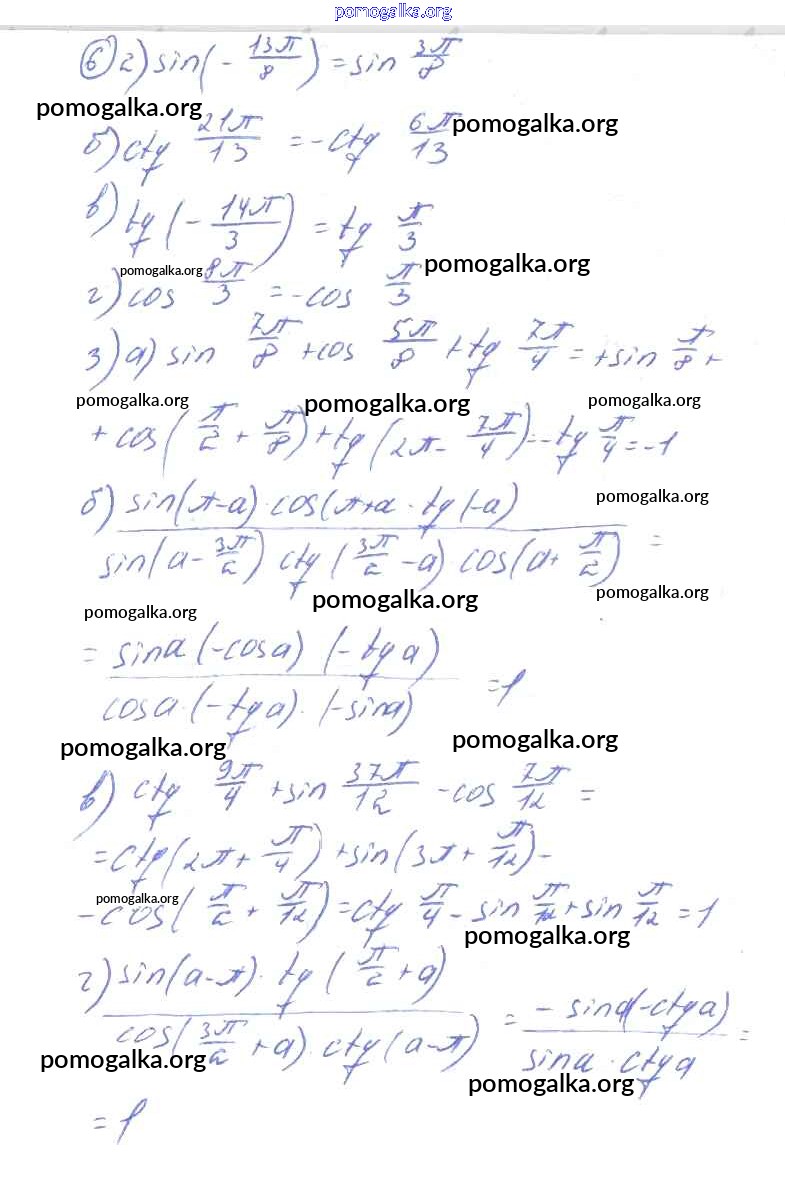 pomogalka.org
⑥ 2) sin(- 13π/8) = sin 3π/8
pomogalka.org
б) ctg 21π/13 = -ctg 6π/13
pomogalka.org
в) tg(- 14π/3) = tg π/3
pomogalka.org
г) cos 8π/3 = -cos π/3
pomogalka.org
3) а) sin 7π/8 + cos 5π/8 + tg 7π/4 = +sin π/8 +
pomogalka.org pomogalka.org pomogalka.org
+ cos(π/2 + π/8) + tg(2π - 7π/4) = -tg π/4 = -1
б) sin(π-a)·cos(π+a · tg(-a)
pomogalka.org
sin(a- 3π/2) ctg(3π/2 -a)·cos(a+ π/2) =
pomogalka.org pomogalka.org
pomogalka.org
= sina(-cosa) (-tg a)
cosa·(-tga)·(-sina) = 1
pomogalka.org pomogalka.org
в) ctg 9π/4 + sin 37π/12 - cos 7π/12 =
= ctg(2π + π/4) + sin(3π + π/12) -
pomogalka.org
- cos(π/2 + π/12) = ctg π/4 - sin π/12 + sin π/12 = 1
pomogalka.org
г) sin(a-π)· tg(π/2 + a)
cos(3π/2 + a)·ctg(a-π) = - sina(-ctga)
sina · ctga =
pomogalka.org pomogalka.org
= 1